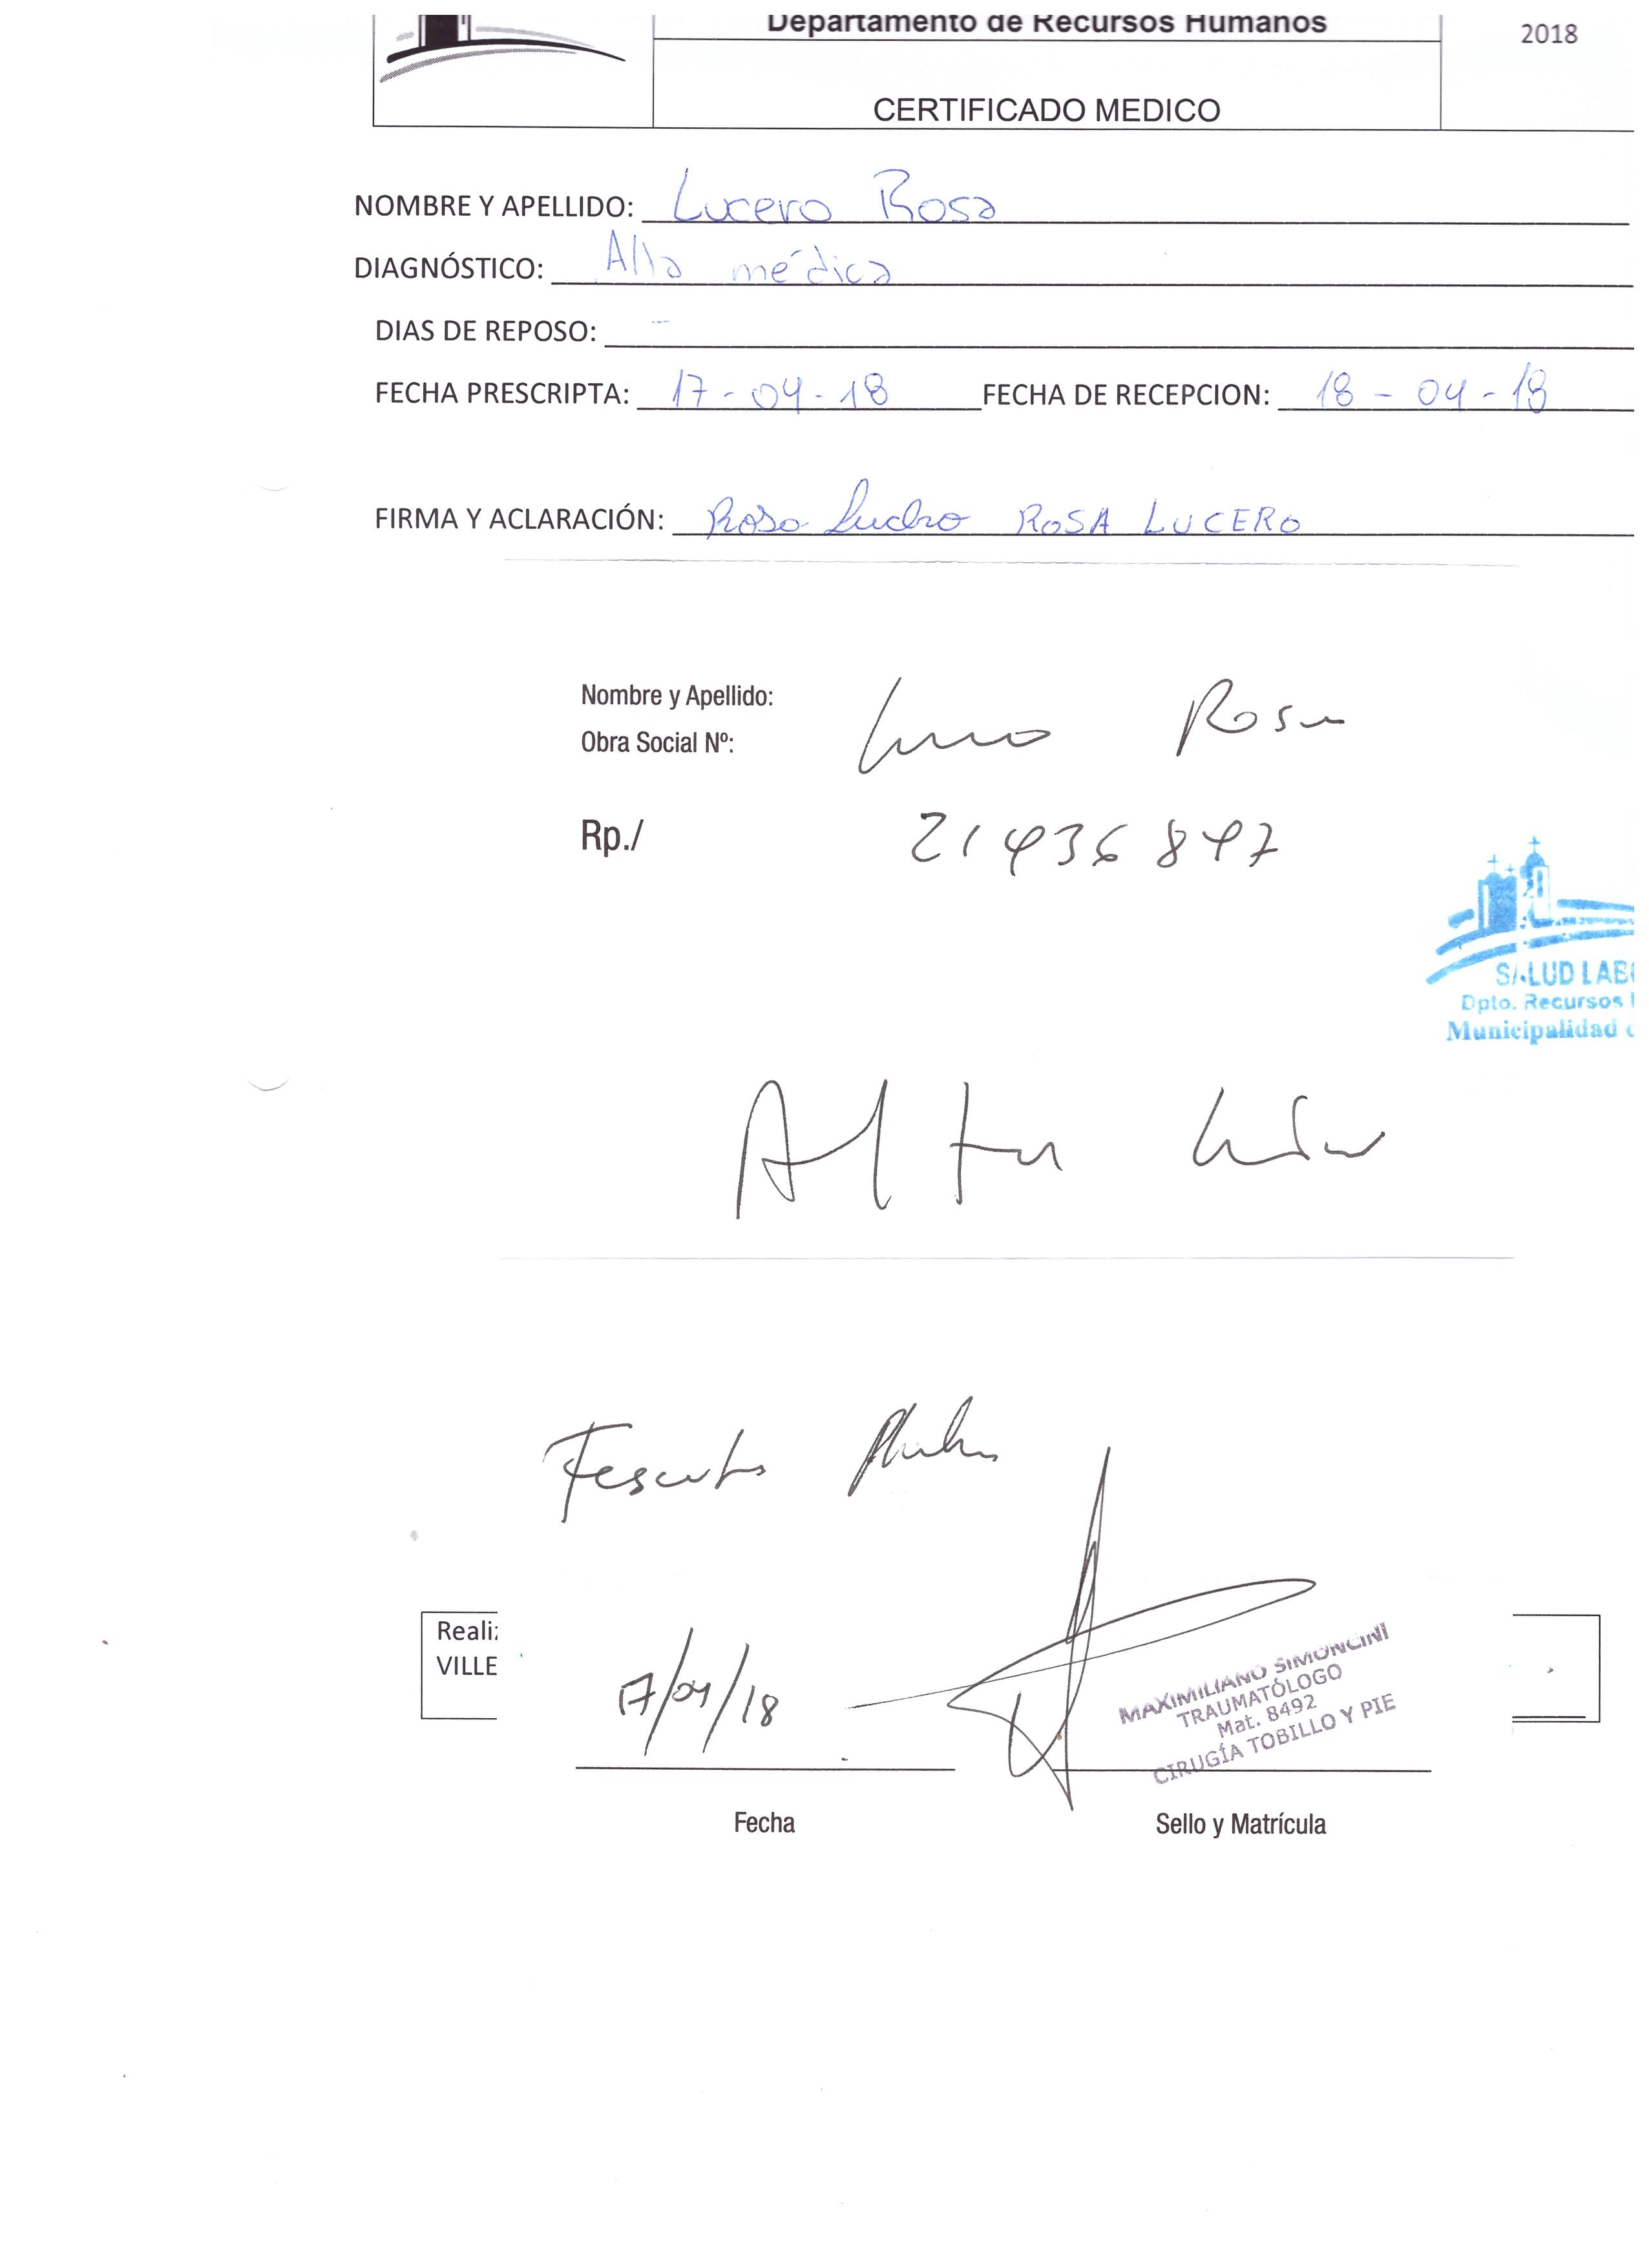 Departamento de Recursos Humanos
2018
CERTIFICADO MEDICO
NOMBRE Y APELLIDO: Lucero Rosa
DIAGNÓSTICO: Alta médica
DIAS DE REPOSO: --
FECHA PRESCRIPTA: 17-04-18 FECHA DE RECEPCION: 18-04-18
FIRMA Y ACLARACIÓN: Rosa Lucero ROSA LUCERO
Nombre y Apellido: Rosa
Obra Social Nº:
Rp./ 21436847
SALUD LABO
Dpto. Recursos
Municipalidad
Alta
Reali
VILLE
17/04/18
MAXIMILIANO SIMONCINI
TRAUMATÓLOGO
Mat. 8492
CIRUGÍA TOBILLO Y PIE
Fecha
Sello y Matrícula